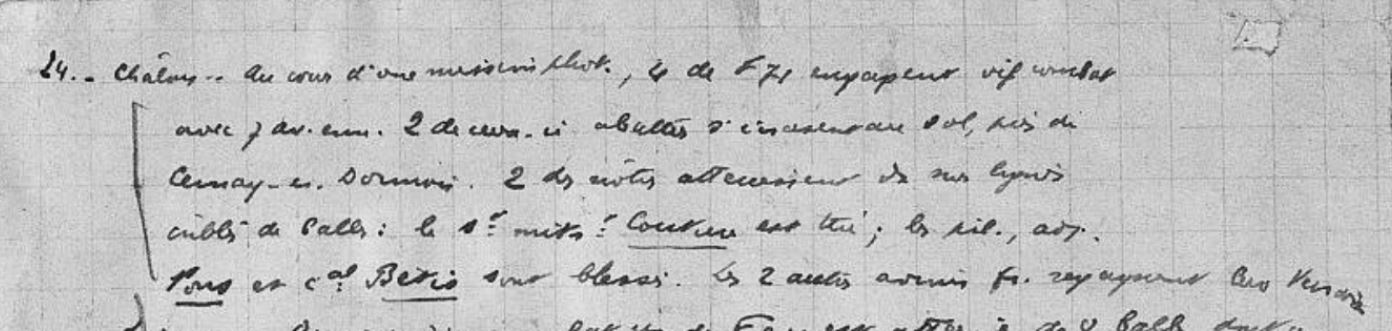 24. - Châlons - Au cours d'une mission phot., 4 de F 71 engagent vif combat
avec 7 av. enn. 2 de ceux-ci abattus s'écrasent au sol, près de
Cernay-en-Dormois. 2 des nôtres atterrissent ds nos lignes
criblés de balles : le st mitr. Couture est tué ; les pil., adj.
Pons et cal Betis sont blessés. Les 2 autres avions fr. regagnent leur terrain
est de balles